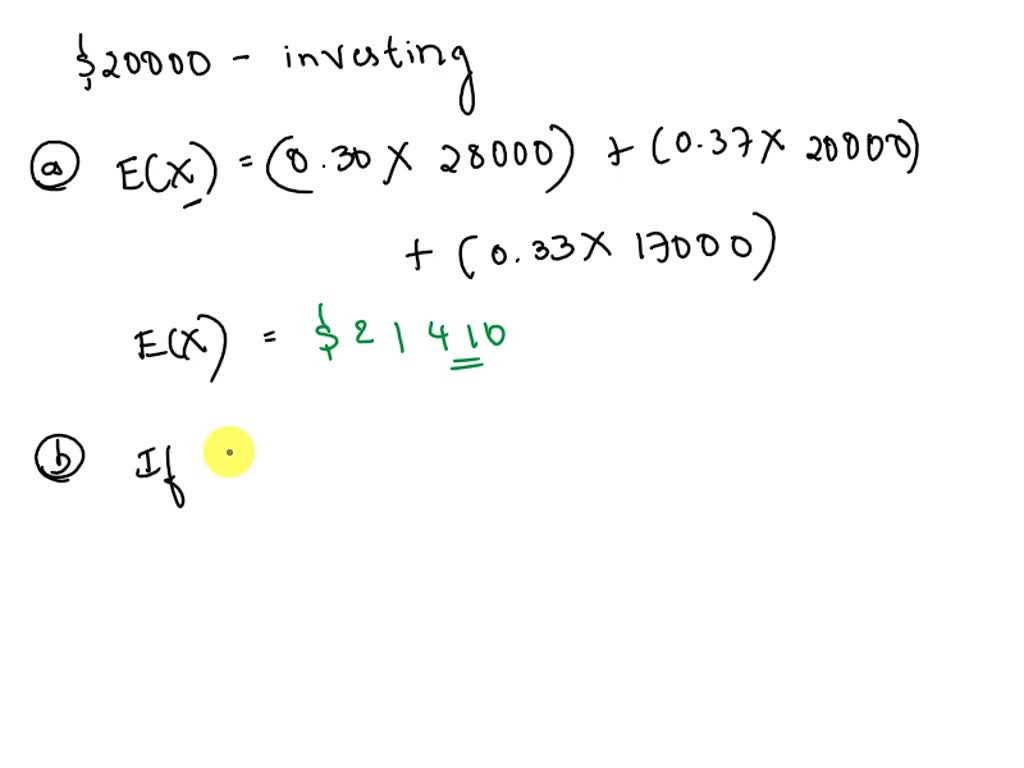 $20000 - investing
a E(X) = (0.30 X 28000) + (0.37 X 20000)
+ (0.33 X 17000)
E(X) = $21410
b If